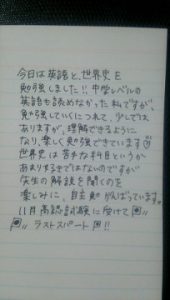 今日は英語と、世界史を
勉強しました!! 中学レベルの
英語も読めなかった私ですが、
勉強していくにつれて、少しでは
ありますが、理解できるように
なり、楽しく勉強できています
世界史は苦手な科目というか
あまり好きではないのですが
先生の解説を聞くのを
楽しみに、日々がんばっています。
11月 高認試験に向けて
ラストスパート!!